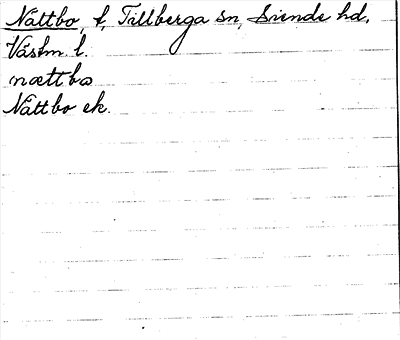 Nättbo, t, Tillberga sn, Siende hd,
Västm. l.
nættbo
Nättbo ek.